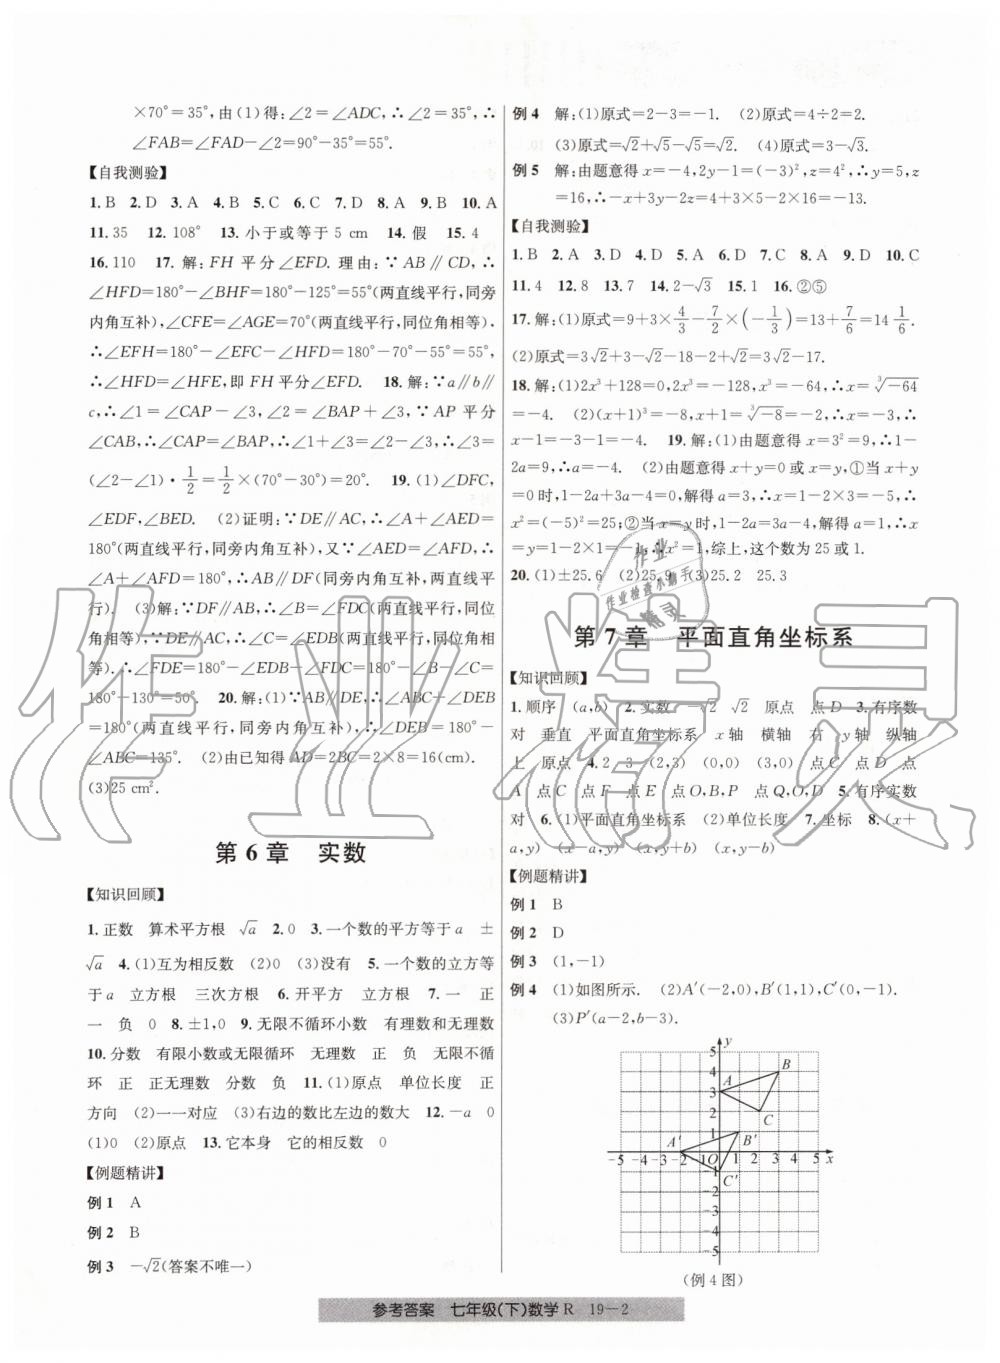 ×70°=35°,由(1)得:∠2=∠ADC,∴∠2=35°,∴
∠FAB=∠FAD-∠2=90°-35°=55°.
【自我测验】
1.B 2.D 3.A 4.B 5.C 6.C 7.D 8.A 9.B 10.A
11.35 12.108° 13.小于或等于5 cm 14.假 15.4
16.110 17.解:FH平分∠EFD.理由:∵AB∥CD,∴
∠HFD=180°-∠BHF=180°-125°=55°(两直线平行,同旁
内角互补),∠CFE=∠AGE=70°(两直线平行,同位角相等).
∴∠EFH=180°-∠EFC-∠HFD=180°-70°-55°=55°,
∴∠HFD=∠HFE,即FH平分∠EFD. 18.解:∵a∥b∥
c,∴∠1=∠CAP-∠3,∠2=∠BAP+∠3,∵AP平分
∠CAB,∴∠CAP=∠BAP,∴∠1+∠3=∠2-∠3,∴∠3=
(∠2-∠1)·1/2=1/2×(70°-30°)=20°. 19.(1)∠DFC,
∠EDF,∠BED. (2)证明:∵DE∥AC,∴∠A+∠AED=
180°(两直线平行,同旁内角互补),又∵∠AED=∠AFD,∴
∠A+∠AFD=180°,∴DF∥AB(同旁内角互补,两直线平
行). (3)解:∵DF∥AB,∴∠B=∠FDC(两直线平行,同位
角相等),∵DE∥AC,∴∠C=∠EDB(两直线平行,同位角相
等).∴∠FDE=180°-∠EDB-∠FDC=180°-∠C-∠B=
180°-130°=50°. 20.解:(1)∵AB∥DE,∴∠ABC+∠DEB
=180°(两直线平行,同旁内角互补),∴∠DEB=180°-
∠ABC=135°. (2)由已知得AD=2DC=2×8=16(cm).
(3)25 cm².
第6章 实数
【知识回顾】
1.正数 算术平方根 √a 2.0 3.一个数的平方等于a ±
√a 4.(1)互为相反数 (2)0 (3)没有 5.一个数的立方等
于a 立方根 三次方根 6.开平方 立方根 7.一 正
一 负 0 8.±1,0 9.无限不循环小数 有理数和无理数
10.分数 有限小数或无限循环 无理数 正 负 无限不循
环 正 正无理数 分数 负 11.(1)原点 单位长度 正
方向 (2)一一对应 (3)右边的数比左边的数大 12.-a 0
(1)0 (2)原点 13.它本身 它的相反数 0
【例题精讲】
例1 A
例2 B
例3 -√2(答案不唯一)
例4 解:(1)原式=2-3=-1. (2)原式=4÷2=2.
(3)原式=√2+√5-√5=√2. (4)原式=3-√3.
例5 解:由题意得x=-4,2y-1=(-3)²,z=4²,∴y=5,z
=16,∴-x+3y-2z=4+3×5-2×16=-13.
【自我测验】
1.B 2.A 3.D 4.D 5.D 6.C 7.C 8.A 9.D 10.C
11.4 12.8 13.7 14.2-√3 15.1 16.②⑤
17.解:(1)原式=9+3×4/3-7/2×(-1/3)=13+7/6=14 1/6.
(2)原式=3√2+3-√2-18-2+√2=3√2-17.
18.解:(1)2x³+128=0,2x³=-128,x³=-64,∴x=∛-64
=-4. (2)(x+1)³=-8,x+1=∛-8=-2,∴x=-3,∴
x-1=-3-1=-4. 19.解:(1)由题意得x=3²=9,∴1-
2a=9,∴a=-4. (2)由题意得x+y=0或x=y,①当x+y
=0时,1-2a+3a-4=0,解得a=3,∴x=1-2×3=-5,∴
x²=(-5)²=25;②当x=y时,1-2a=3a-4,解得a=1,∴x
=1-2×1=-1,∴x²=1,综上,这个数为25或1.
20.(1)±25.6 (2)25.9 (3)25.2 25.3
第7章 平面直角坐标系
【知识回顾】
1.顺序 (a,b) 2.实数 -√2 √2 原点 点D 3.有序数
对 垂直 平面直角坐标系 x轴 横轴 右 y轴 纵轴
上 原点 4.2 3 (2,3) (0,0) (3,0) 点C 点D 点
A 点C 点F 点E 点O,B,P 点O,Q,D 5.有序实数
对 6.(1)平面直角坐标系 (2)单位长度 7.坐标 8.(x+
a,y) (x-a,y) (x,y+b) (x,y-b)
【例题精讲】
例1 B
例2 D
例3 (1,-1)
例4 (1)如图所示. (2)A′(-2,0),B′(1,1),C′(0,-1).
(3)P′(a-2,b-3).
y
5
4
3
2
1
A
B
C
A′
B′
O
C′
-5 -4 -3 -2 -1 1 2 3 4 5 x
-1
-2
-3
-4
-5
(例4图)
参考答案 七年级(下)数学R 19-2
作业精灵
作业
作业检查小助手
精灵